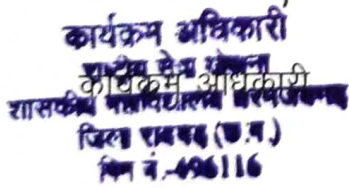 कार्यक्रम अधिकारी
राष्ट्रीय सेवा योजना
कार्यक्रम अधिकारी
शासकीय महाविद्यालय
जिला रायगढ़ (छ.ग.)
पिन नं.-496116